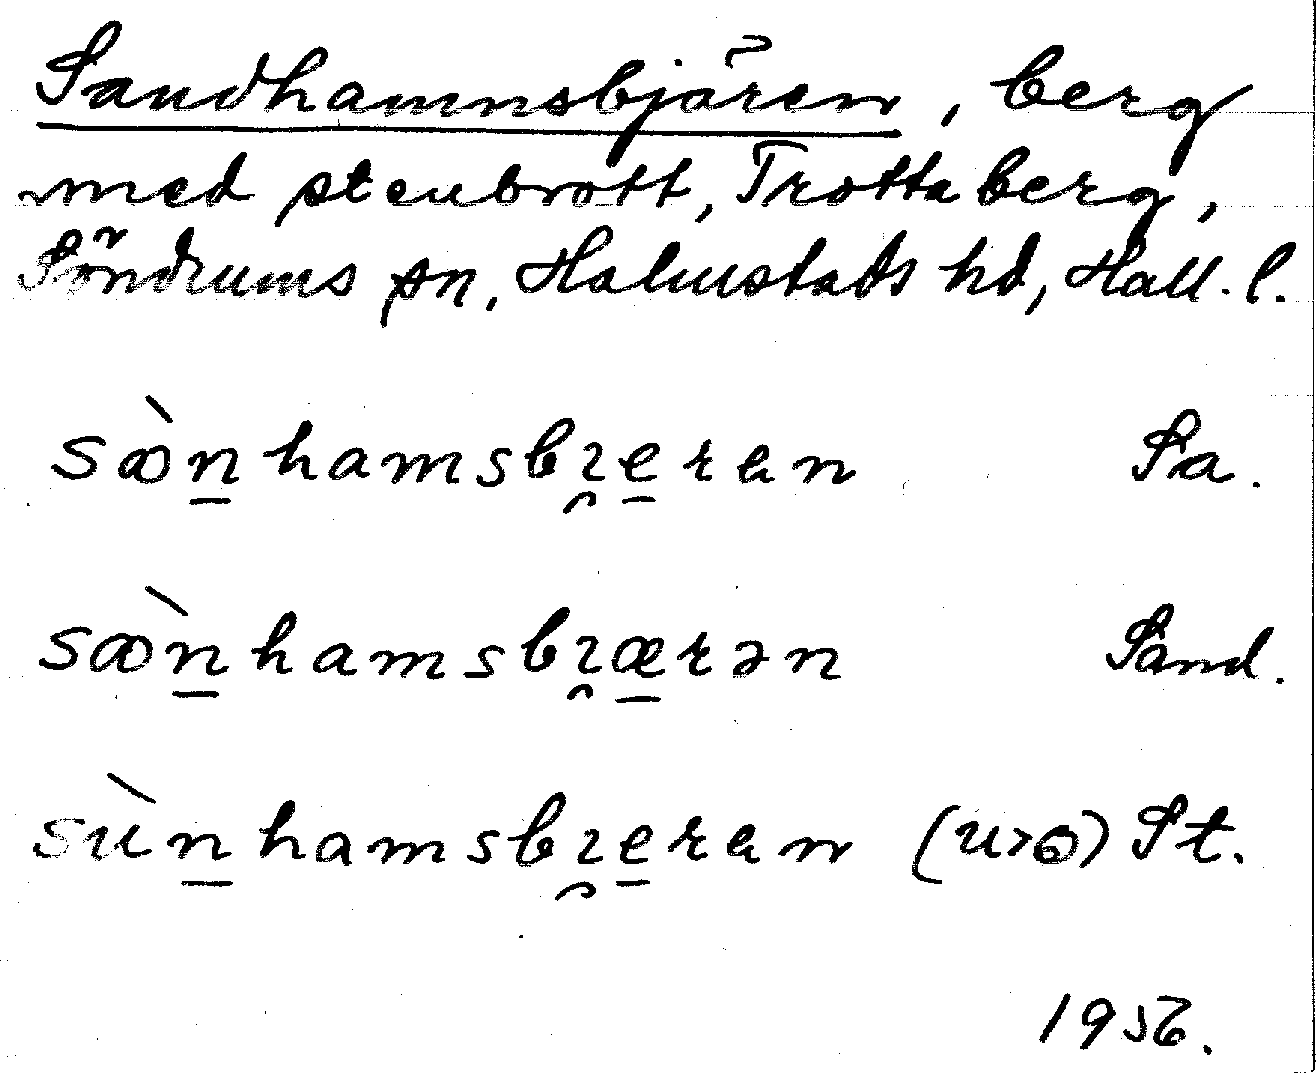 Sandhamnsbjären, berg
med stenbrott, Trottaberg,
Söndrums sn, Halmstads hd, Hall. l.
sꝏ̀n̲hamsbɿ̯e̲ran Sa.
sꝏ̀n̲hamsbɿ̯æ̲rən Sand.
sùn̲hamsbɿ̯e̲ran (u>ɵ) St.
1956.